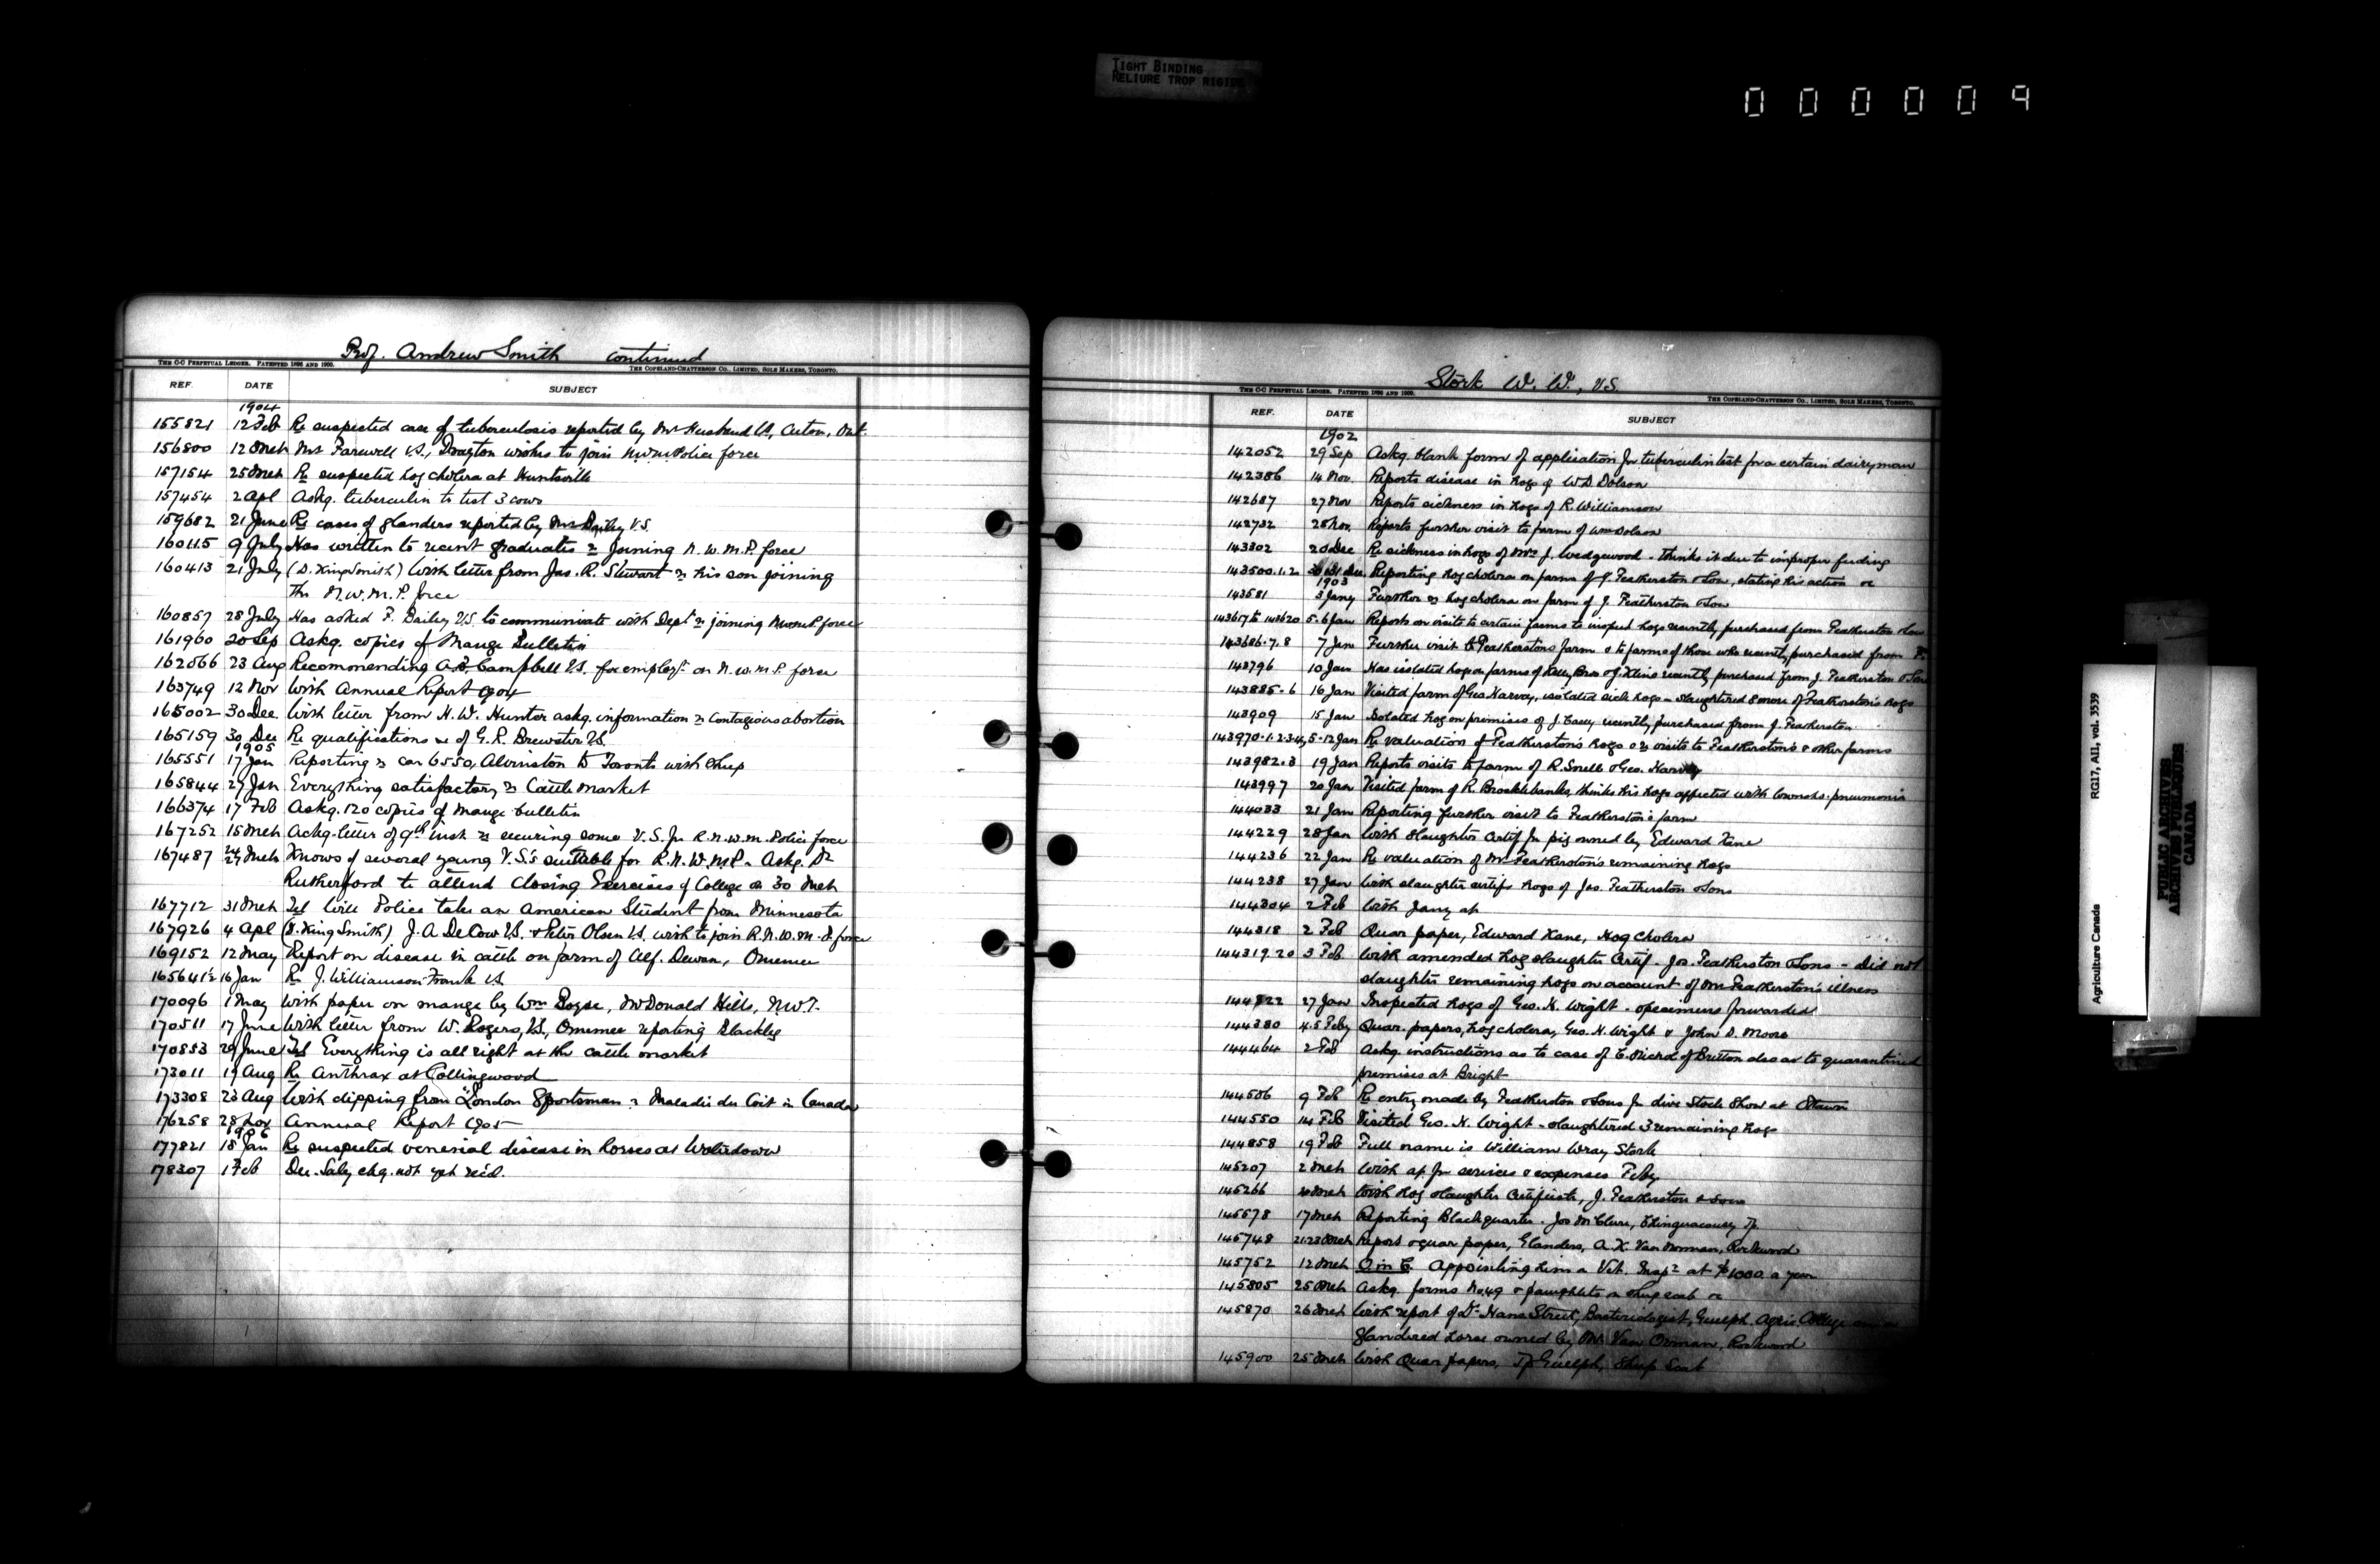 TIGHT BINDING
RELIURE TROP RIGIDE
000009
Prof. Andrew Smith continued
THE C-C PERPETUAL LEDGER. PATENTED 1896 AND 1900.
THE COPELAND-CHATTERSON CO., LIMITED, SOLE MAKERS, TORONTO.
REF. DATE SUBJECT
1904
155821 12 Feb Re suspected case of tuberculosis reported by Mr Husband VS, Acton, Ont.
156800 12 Mch Mr Farewell V.S., Drayton wishes to join N.W.M. Police force
157154 25 Mch Re suspected hog cholera at Huntsville
157454 2 Apl Askg. tuberculin to test 3 cows
159682 21 June Re cases of glanders reported by Mr Bailey V.S.
160115 9 July Has written to recent graduates re joining N.W.M.P. force
160413 21 July (D. King Smith) With letter from Jas. R. Stewart re his son joining
the N.W.M.P. force
160857 28 July Has asked F. Bailey V.S. to communicate with Dept re joining N.W.M.P. force
161960 20 Sep Askg. copies of Mange Bulletin
162066 23 Aug Recomending Campbell V.S. for employt on N.W.M.P. force
163749 12 Nov With Annual Report 1904
165002 30 Dec. With letter from H.W. Hunter askg. information re Contagious abortion
165159 30 Dec Re qualifications &c of G.R. Brewster V.S.
1905
165551 17 Jan Reporting re car 6550, Alvinston to Toronto with sheep
165844 27 Jan Everything satisfactory re Cattle Market
166374 17 Feb Askg. 120 copies of Mange bulletin
167252 15 Mch Ackg. letter of 9th inst re securing some V.S. for R.N.W.M. Police force
167487 27 Mch Knows of several young V.S's suitable for R.N.W.M.P. Askg. Dr
Rutherford to attend Closing Exercises of College on 30 Mch
167712 31 Mch Tel Will Police take an American Student from Minnesota
167926 4 Apl (D. King Smith) J.A. DeCow V.S. & Peter Olsen V.S. wish to join R.N.W.M.P. force
169152 12 May Report on disease in cattle on farm of Alf. Dewan, Omemee
165641½ 16 Jan Re J. Williamson Frank V.S.
170096 1 May With paper on mange by Wm Bogue, McDonald Hills, N.W.T.
170511 17 June With letter from W. Rogers, V.S., Omemee reporting Blackleg
170853 29 June Tel Everything is all right at the cattle market
173011 19 Aug Re Anthrax at Collingwood
173308 23 Aug With clipping from "London Sportsman" re Maladie du Coit in Canada
176258 28 Nov Annual Report 1905
1906
177821 18 Jan Re suspected venerial disease in horses at Waterdown
178307 1 Feb Dec. Saly chq. not yet recd.
Stork W. W., V.S.
THE C-C PERPETUAL LEDGER. PATENTED 1896 AND 1900.
THE COPELAND-CHATTERSON CO., LIMITED, SOLE MAKERS, TORONTO.
REF. DATE SUBJECT
1902
142052 29 Sep Askg. blank form of application for tuberculin test for a certain dairyman
142386 14 Nov. Reports disease in hogs of W.D. Dolson
142687 27 Nov Reports sickness in hogs of R. Williamson
142732 28 Nov. Reports further visit to farm of Wm Dolson
143302 20 Dec Re sickness in hogs of J. Wedgewood - thinks it due to improper feeding
143500.1.2 30 31 Dec. Reporting hog cholera on farm of J. Featherston & Son, stating his action &c
1903
143581 3 Jany Further re hog cholera on farm of J. Featherston & Son
143617 to 143620 5.6 Jan Reports on visits to certain farms to inspect hogs recently purchased from Featherston & Son
143686.7.8 7 Jan Further visit to Featherston's farm & to farms of those who recently purchased from F.
143796 10 Jan Has isolated hogs on farms of Kelly Bros recently purchased from J. Featherston & Son
143885.6 16 Jan Visited farm of Geo Harvey, isolated sick hogs - slaughtered 8 more of Featherston's hogs
143909 15 Jan Isolated hog on premises of J. Casey recently purchased from J. Featherston
143970.1.2.3.4 5-12 Jan Re valuation of Featherston's hogs & re visits to Featherston's & other farms
143982.3 19 Jan Reports visits to farm of R. Snell & Geo. Harvey
143997 20 Jan Visited farm of R. Brocklebank, thinks his hogs affected with pneumonia
144033 21 Jan Reporting further visit to Featherston's farm
144229 28 Jan With slaughter Certif for pig owned by Edward Kane
144236 22 Jan Re valuation of Mr Featherston's remaining hogs
144238 27 Jan With slaughter certifs hogs of Jos. Featherston & Sons
144304 2 Feb With Jany a/c
144318 2 Feb Quar paper, Edward Kane, Hog Cholera
144319.20 3 Feb With amended hog slaughter Certif - Jos. Featherston & Sons - did not
slaughter remaining hogs on account of Mr Featherston's illness
144322 27 Jan Inspected hogs of Geo. H. Wight - specimens forwarded
144380 4.5 Feby Quar. papers, hog cholera, Geo. H. Wight & John D. Moore
144464 2 Feb Askg. instructions as to case of E. Nichol of Britton also as to quarantined
premises at Bright
144506 9 Feb Re entry made by Featherston & Sons for Live Stock Show at Ottawa
144550 14 Feb Visited Geo. H. Wight - slaughtered 3 remaining hogs
144858 19 Feb Full name is William Wray Stork
145207 2 Mch With a/c for services & expenses Feby
145266 4 Mch With hog slaughter Certificate, J. Featherston & Sons
145578 17 Mch Reporting Blackquarter. Jos McClure, Chinguacousy Tp.
145748 21.23 Mch Report & quar paper, Glanders, A.X. Van Norman, Rockwood
145752 12 Mch O in C. Appointing him a Vet. Inspr at $1000 a year
145805 25 Mch Askg. forms No 49 & pamphlets on sheep scab &c
145870 26 Mch With report of Dr Hans Street, Bacteriologist, Guelph Agric. College
glandered horse owned by Mr. Van Orman, Rockwood
145900 25 Mch With Quar papers, Tp Guelph, Sheep Scab
Agriculture Canada RG17, AII, vol. 3539
PUBLIC ARCHIVES
ARCHIVES PUBLIQUES
CANADA